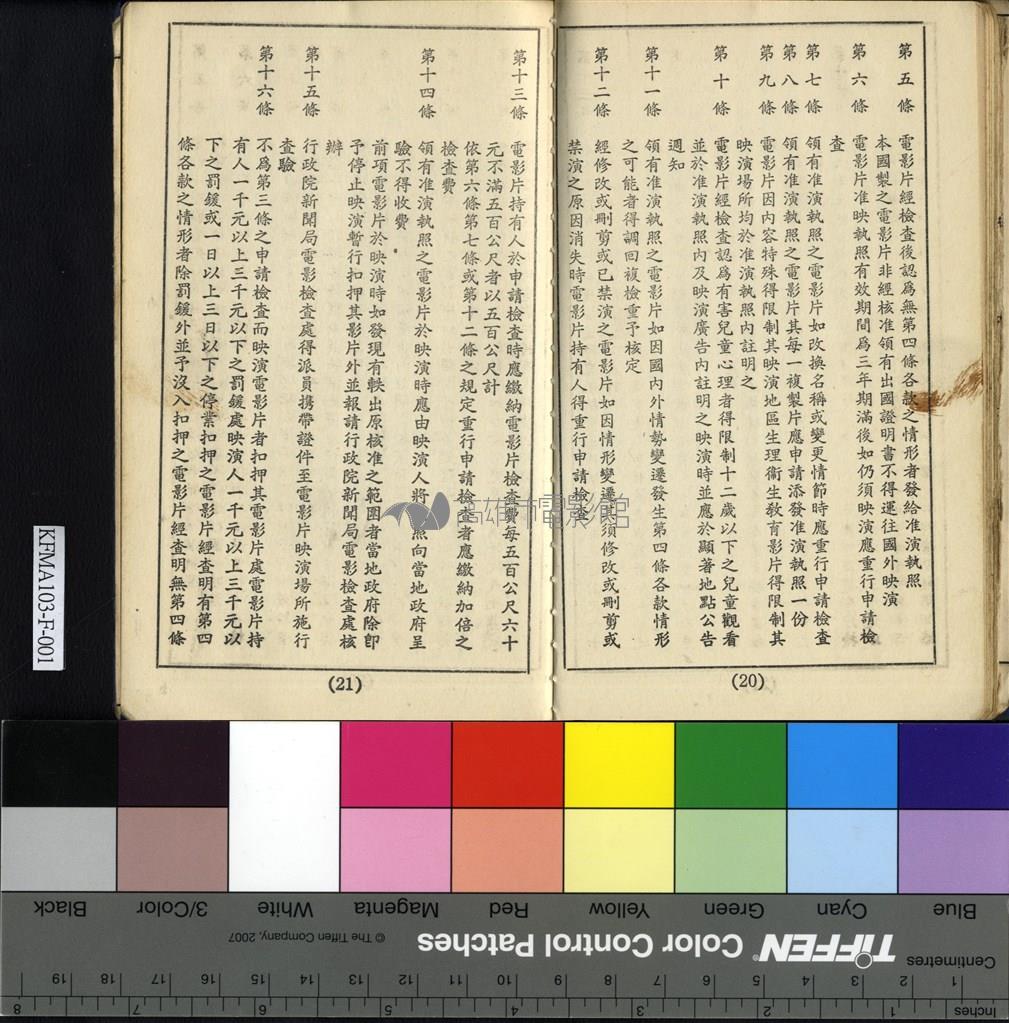 第五條 電影片經檢查後認爲無第四條各款之情形者發給准演執照
本國製之電影片非經核准領有出國證明書不得運往國外映演
第六條 電影片准映執照有效期間爲三年期滿後如仍須映演應重行申請檢
查
第七條 領有准演執照之電影片如改換名稱或變更情節時應重行申請檢查
第八條 領有准演執照之電影片其每一複製片應申請添發准演執照一份
第九條 電影片因內容特殊得限制其映演地區生理衞生敎育影片得限制其
映演場所均於准演執照內註明之
第十條 電影片經檢查認爲有害兒童心理者得限制十二歲以下之兒童觀看
並於准演執照內及映演廣告內註明之映演時並應於顯著地點公告
週知
第十一條 領有准演執照之電影片如因國內外情勢變遷發生第四條各款情形
之可能者得調回複檢重予核定
第十二條 經修改或刪剪或已禁演之電影片如因情形變遷須修改或刪剪或
禁演之原因消失時電影片持有人得重行申請檢查
(20)
第十三條 電影片持有人於申請檢查時應繳納電影片檢查費每五百公尺六十
元不滿五百公尺者以五百公尺計
依第六條第七條或第十二條之規定重行申請檢查者應繳納加倍之
檢查費
第十四條 領有准演執照之電影片於映演時應由映演人將執照向當地政府呈
驗不得收費
前項電影片於映演時如發現有軼出原核准之範圍者當地政府除卽
予停止映演暫行扣押其影片外並報請行政院新聞局電影檢查處核
辦
第十五條 行政院新聞局電影檢查處得派員攜帶證件至電影片映演場所施行
查驗
第十六條 不爲第三條之申請檢查而映演電影片者扣押其電影片處電影片持
有人一千元以上三千元以下之罰鍰處映演人一千元以上三千元以
下之罰鍰或一日以上三日以下之停業扣押之電影片經查明有第四
條各款之情形者除罰鍰外並予沒入扣押之電影片經查明無第四條
(21)
高雄市電影館
KFMA103-F-001
Blue Cyan Green Yellow Red Magenta White 3/Color Black
TIFFEN® Color Control Patches © The Tiffen Company, 2007
Centimetres 1 2 3 4 5 6 7 8 9 10 11 12 13 14 15 16 17 18 19
Inches 1 2 3 4 5 6 7 8